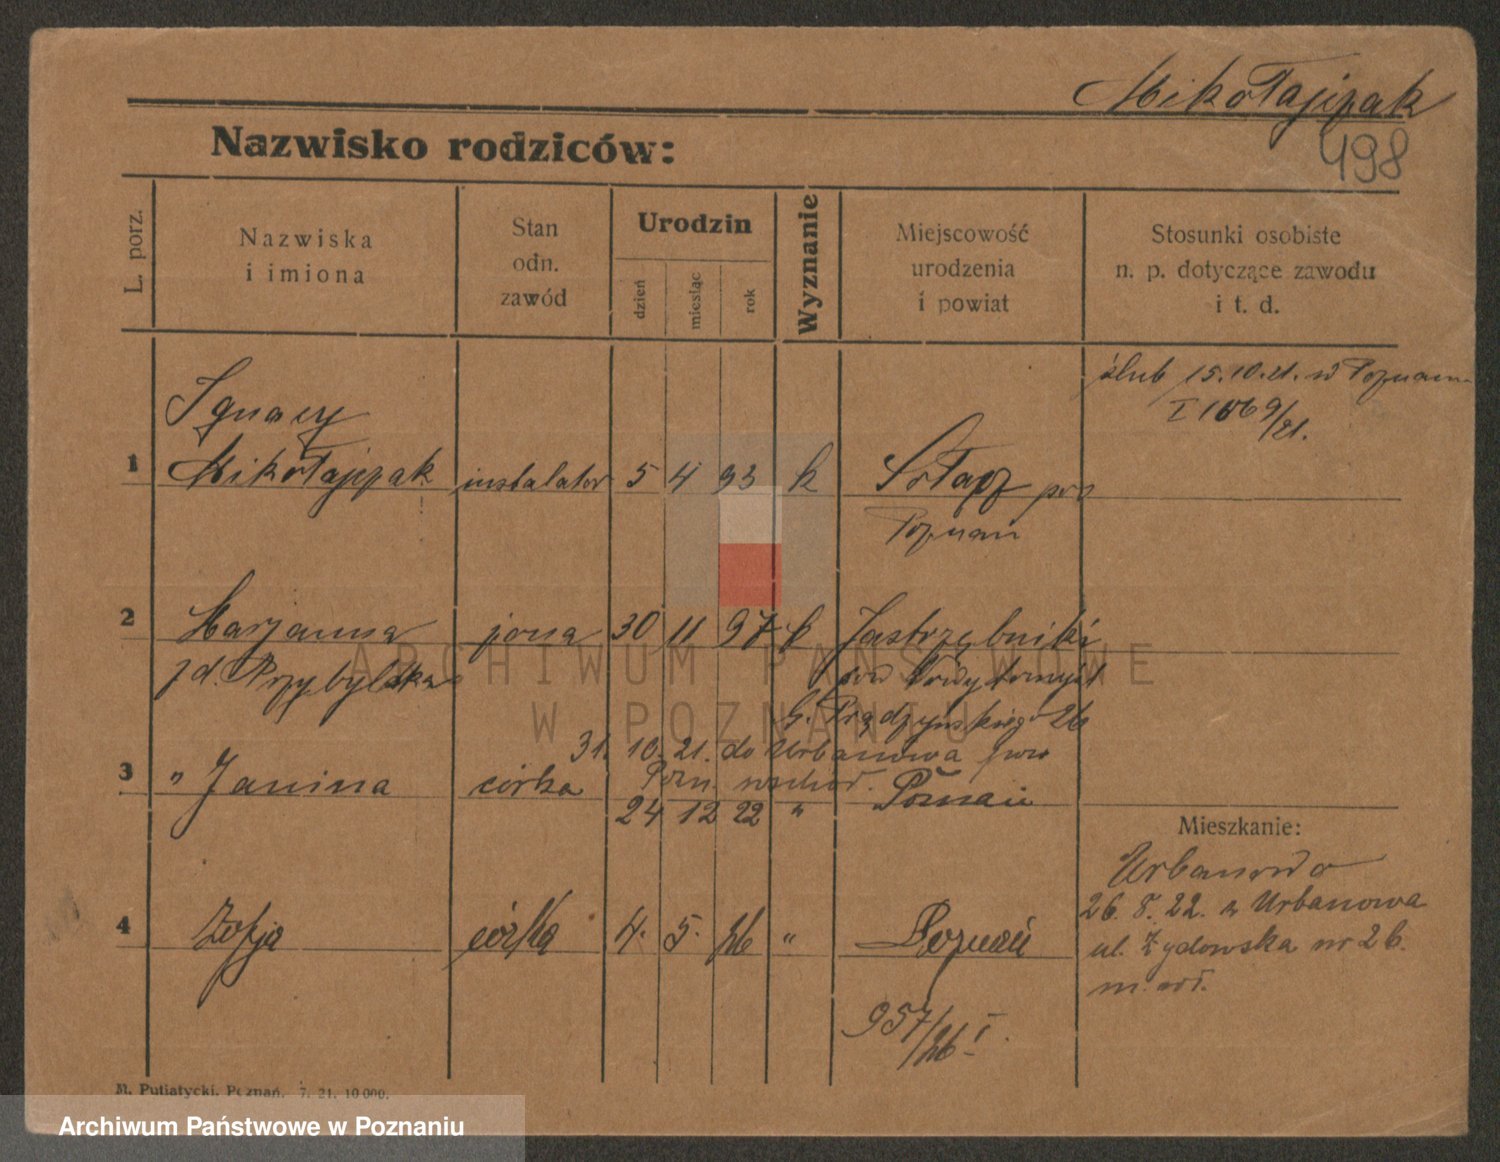 Mikołajczak
498
Nazwisko rodziców:
L. porz.
Nazwiska
i imiona
Stan
odn.
zawód
Urodzin
dzień
miesiąc
rok
Wyznanie
Miejscowość
urodzenia
i powiat
Stosunki osobiste
n. p. dotyczące zawodu
i t. d.
ślub 15.10.21. w Poznaniu
I 1069/21.
1
Ignacy
Mikołajczak
instalator
5
4
93
k
Sołacz pow
Poznań
2
Marjanna
żona
30
11
97
k
Jastrzębniki
z d. Przybylska
pow Nowytomyśl
G. Prądzyńskiego 26
31. 10. 21. do Urbanowa pow
Pozn. wschod.
3
" Janina
córka
24
12
22
"
Poznań
Mieszkanie:
Urbanowo
26. 8. 22. z Urbanowa
ul. Żydowska nr 26.
4
Zofja
córka
4.
5.
26
"
Poznań
957/26 I.
M. Putiatycki, Poznań. 7. 21. 10 000.
ARCHIWUM PAŃSTWOWE
W POZNANIU
Archiwum Państwowe w Poznaniu